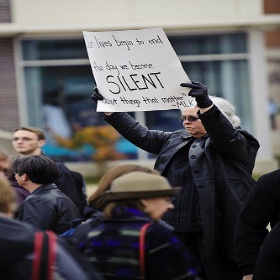 lives begin to end
the day we become
SILENT
about things that matter"
-MLK